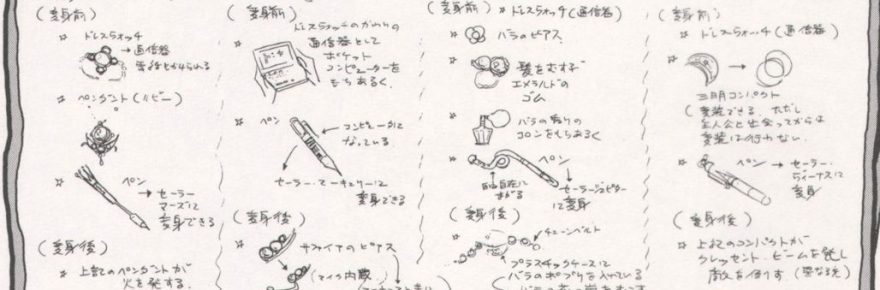 (変身前)
☆ ドレスウォッチ
→通信器
☆ ペンダント(ルビー)
☆ ペン
→セーラー
マーズに
変身できる
(変身後)
☆ 上記のペンダントが
火を発する.
(変身前)
☆ ドレスウォッチのかわりの
通信器として
ポケット
コンピューターを
もちあるく.
☆ ペン
コンピュータに
なっている
セーラー・マーキュリーに
変身できる
(変身後)
☆ サファイアのピアス
(マイク内蔵)
(変身前)
☆ ドレスウォッチ(通信器)
☆ バラのピアス
☆ 髪をむすぶ
エメラルドの
ゴム
☆ バラの香りの
コロンをもちあるく
☆ ペン
自由自在に
まがる
→セーラージュピター
に変身
(変身後)
☆ チェーンベルト
プラスチックケースに
バラのポプリを入れている
(変身前)
☆ ドレスウォッチ(通信器)
☆
三日月コンパクト
(変装できる. ただし
主人公と出会ってからは
変装は行わない.
☆ ペン → セーラー・
ヴィーナスに
変身
(変身後)
☆ 上記のコンパクトが
クレッセント・ビームを発し
敵を倒す.